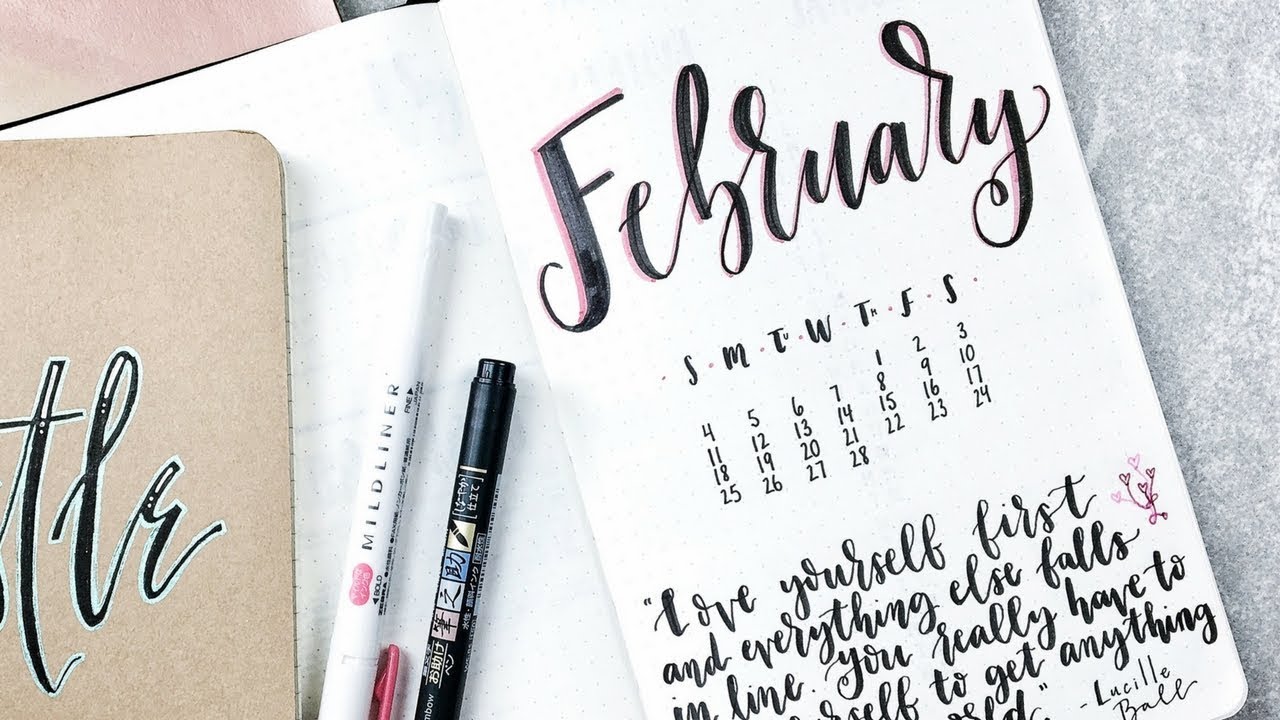 February
S M Tu W Th F S
1 2 3
4 5 6 7 8 9 10
11 12 13 14 15 16 17
18 19 20 21 22 23 24
25 26 27 28
"Love yourself first
and everything else falls
in line. You really have to
to get anything
"
- Lucille
Ball
MILDLINER
FINE
BOLD
お助け
筆之助
しっかり
仕立て
水性
顔料インク
耐水性